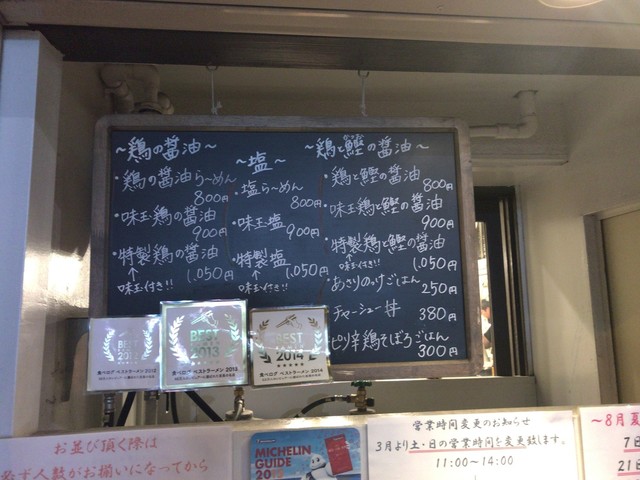 ～鶏の醤油～
・鶏の醤油らーめん
800円
・味玉鶏の醤油
900円
・特製鶏の醤油
↑
味玉付き!! 1,050円
～塩～
・塩らーめん
800円
・味玉塩
900円
・特製塩
↑
味玉付き!! 1,050円
～鶏と鰹の醤油～
・鶏と鰹の醤油
800円
・味玉鶏と鰹の醤油
900円
・特製鶏と鰹の醤油
↑
味玉付き!! 1,050円
・あさりのっけごはん
250円
・チャーシュー丼 380円
・ピリ辛鶏そぼろごはん
300円
BEST
2012
食べログ ベストラーメン 2012
BEST
2013
食べログ ベストラーメン 2013
BEST
2014
食べログ ベストラーメン 2014
お並び頂く際は
必ず人数がお揃いになってから
MICHELIN
GUIDE
営業時間変更のお知らせ
3月より土・日の営業時間を変更致します。
11:00～14:00
～8月 夏
7日
21日